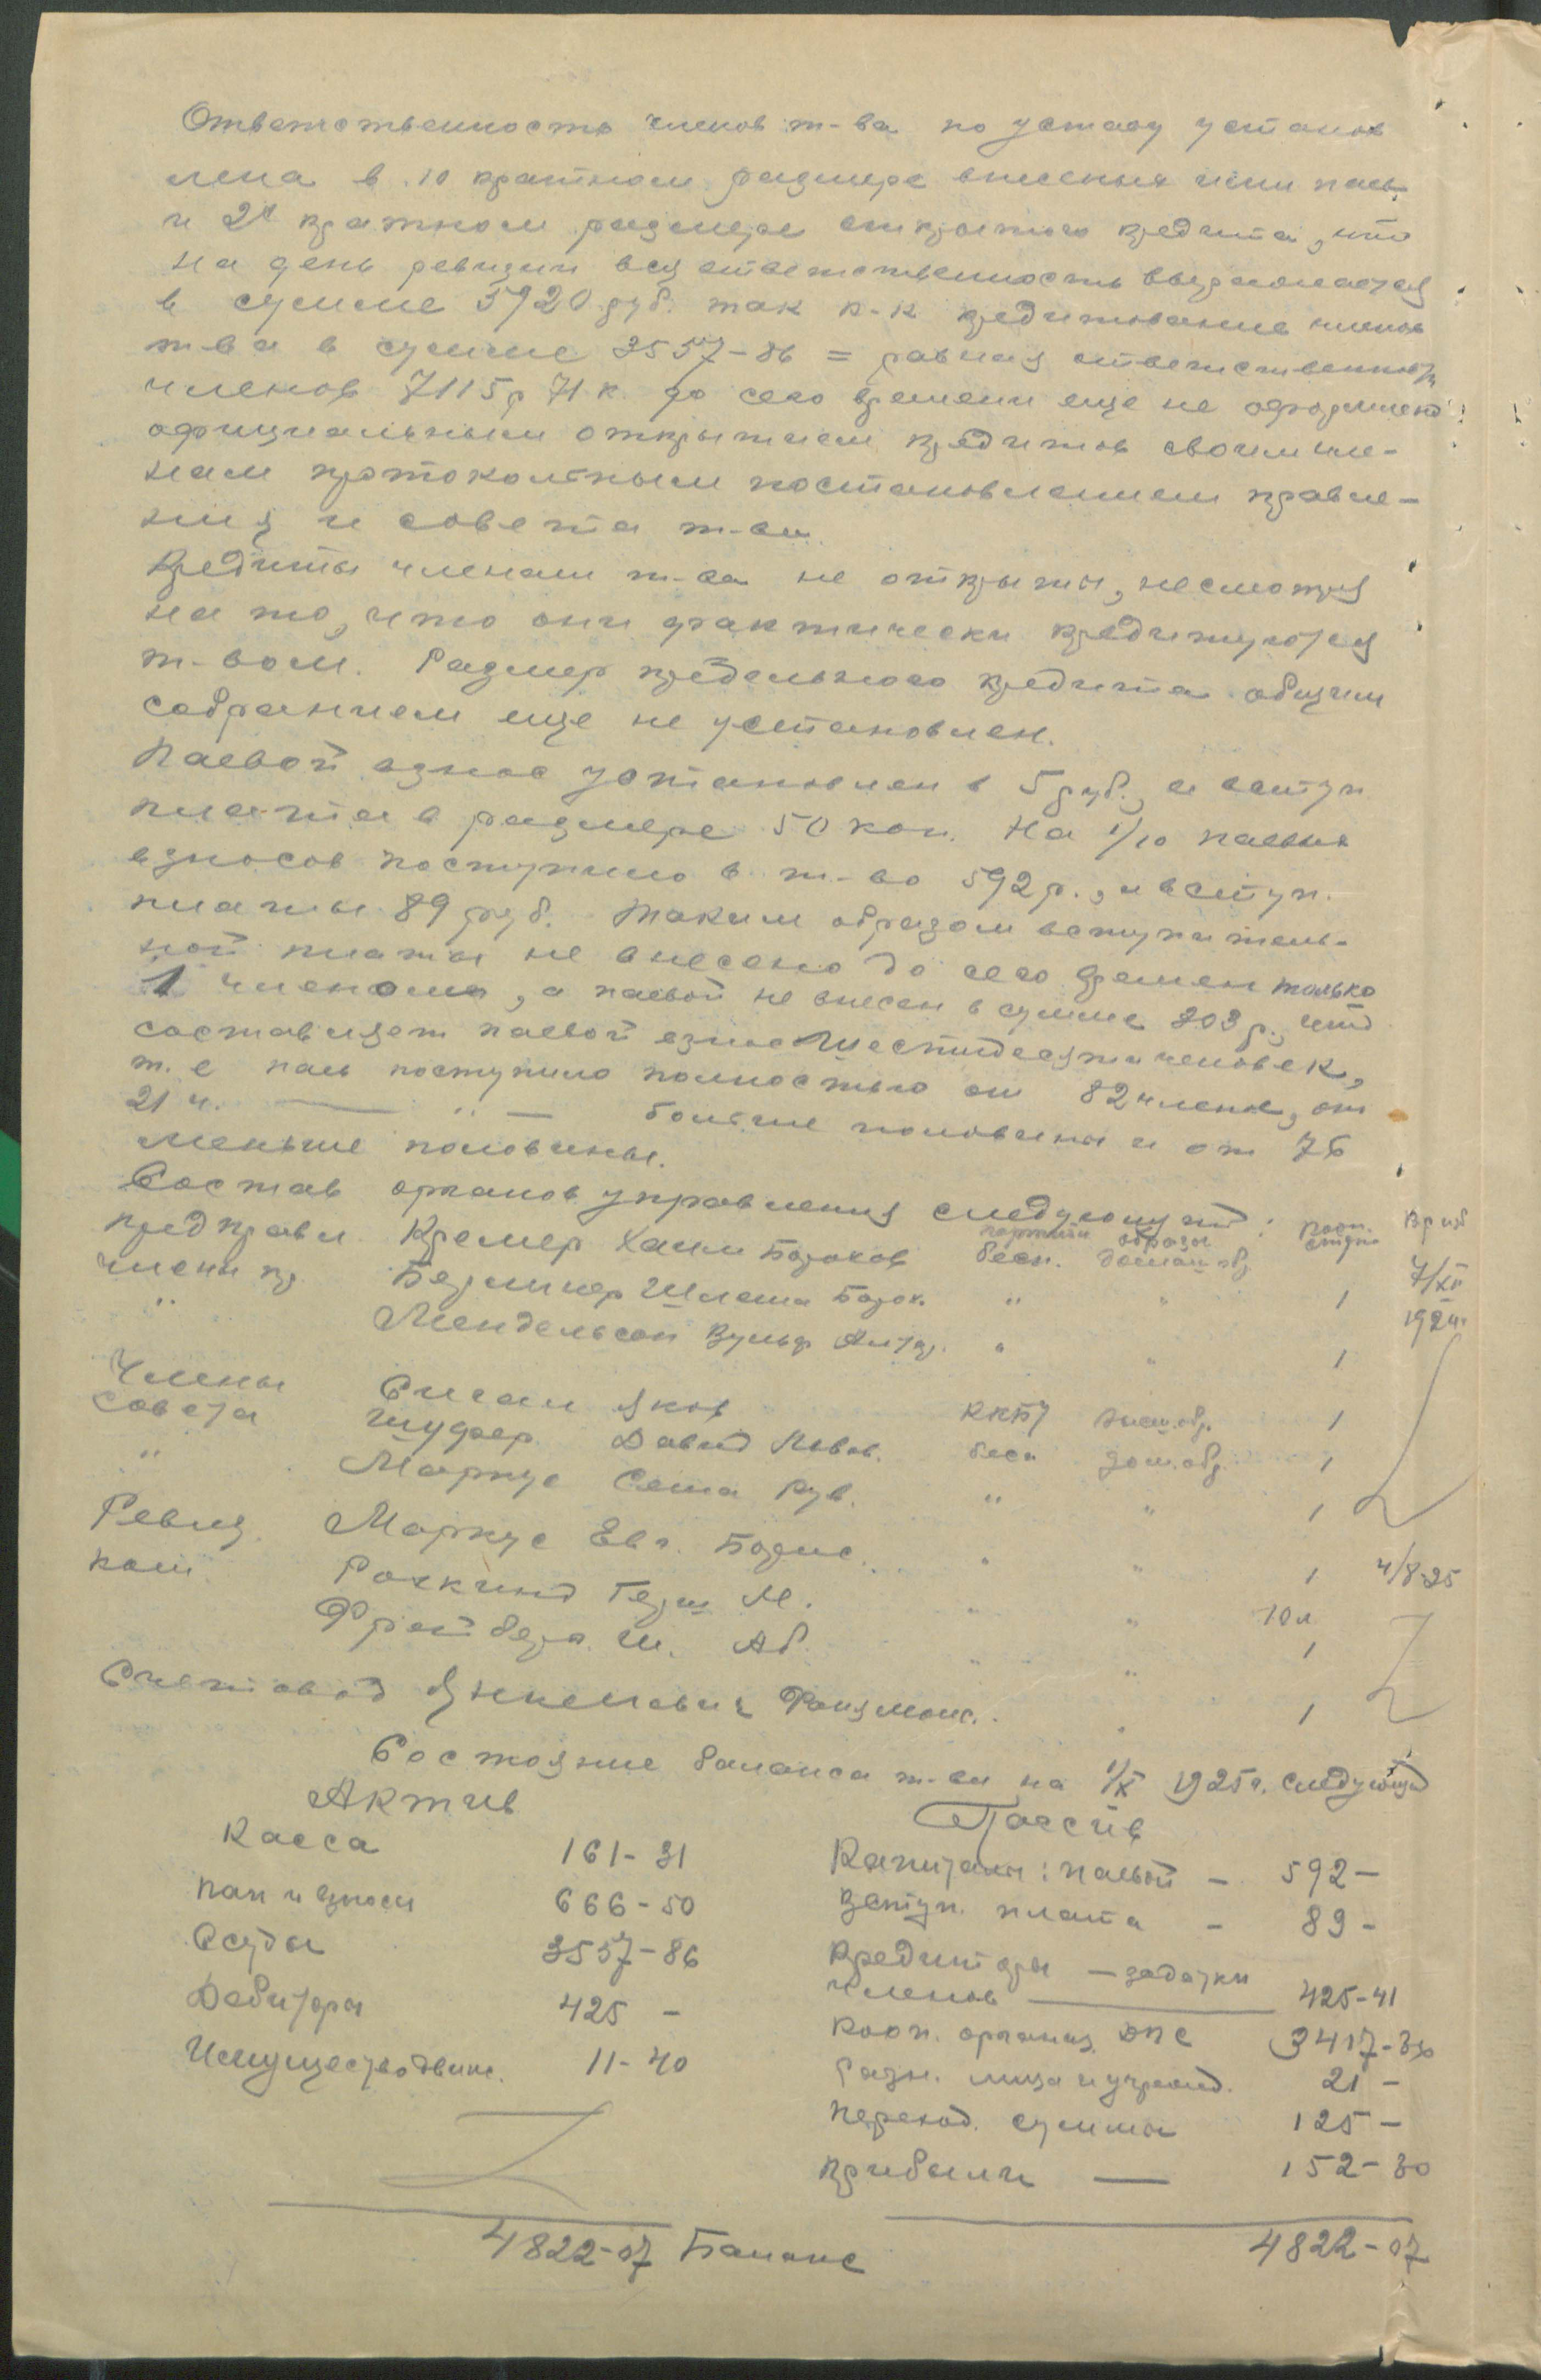 Ответственность членов т-ва по уставу установ
лена в 10 кратном размере внесеных ими паев
и 2х кратном размере открытого кредита, что
на день ревизии вся ответственность выразилась
в сумме 5920 руб. так к-к кредитование членов
т-ва в сумме 3557-86 = равная ответственность
членов 7115 р 71 к. до сего времени еще не оформлено
официальным открытием кредитов своим чле-
нам протокольным постановлением правле-
ния и совета т-ва.
Кредиты членам т-ва не открыты, несмотря
на то, что они фактически кредитуются
т-вом. Размер предельного кредита общим
собранием еще не установлен.
Паевой взнос установлен в 5 руб., а вступ
плата в размере 50 коп. На 1/10 паевых
взносов поступило в т-во 592 р., и вступ.
платы 89 руб. Таким образом вступитель-
ной платы не внесено до сего времен только
1 членом, а паевой не внесен в сумме 303 р., что
составляет паевой взнос шестидесяти человек,
т. е пай поступило полностью от 82 членов, от
21 ч. — " — больше половины и от 76
меньше половины.
Состав органов управления следующий:
партийн образов кооп. стаж Врем
Предправл Кремер Хаим Борохов бесп. домаш обр 7/XII
члены пр. Берлинер Шлема Борох. " " 1 1924 г.
" Мендельсон Вульф " " 1
Члены Яков ККБУ дом. обр. 1
Совета Шуфер Давид Львов. бесп дом. обр. 1
" Маркус Сема Рув. " " 1
Ревиз. Маркус Евг. " " 1 4/8-25
ком. Рохкинд Герш М. " " 10 л
Фрейдберг Ш. Аб. " " 1
Счетовод " 1
Состояние баланса т-ва на 1/X 1925 г. следующий
Актив Пассив
Касса 161-31 Капиталы: паевой - 592-
Паи и взносы 666-50 Вступ. плата - 89-
Ссуды 3557-86 Кредиторы — задатки
Дебиторы 425 - членов — 425-41
Имущество движ. 11-40 Кооп. организ. ДПС 3417-30
Разн. лица и учрежд. 21 -
Переход. суммы 125 -
Прибыли — 152-30
4822-07 Баланс 4822-07